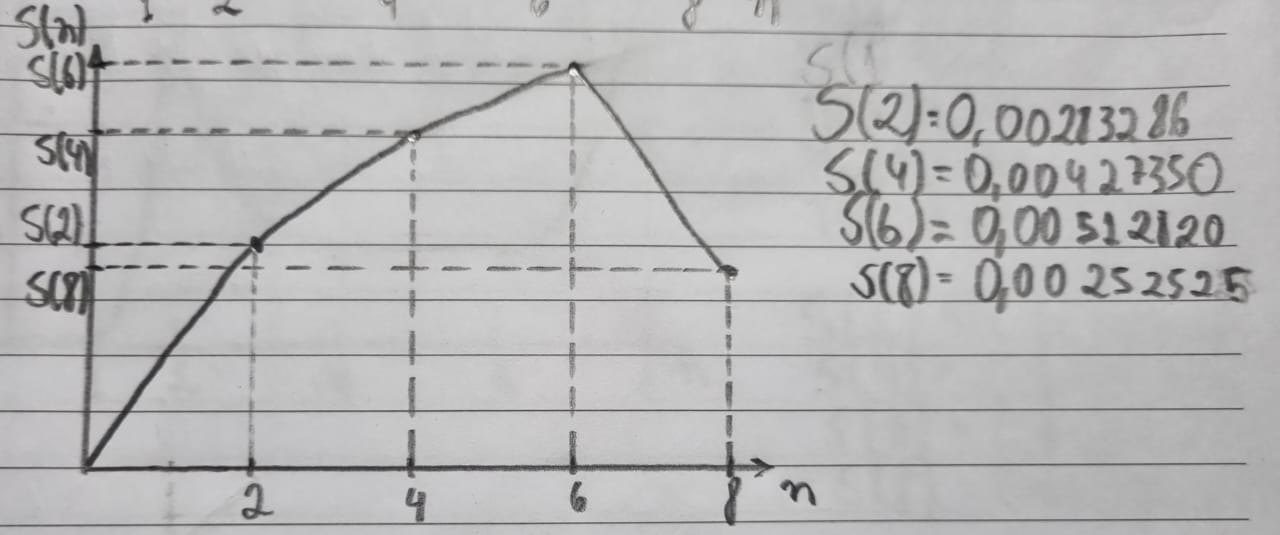 1 2 4 6 8 n
S(n)
S(6)
S(4)
S(2)
S(8)
2 4 6 8 n
S(
S(2)=0,00213286
S(4)=0,00427350
S(6)=0,00512120
S(8)=0,00252525